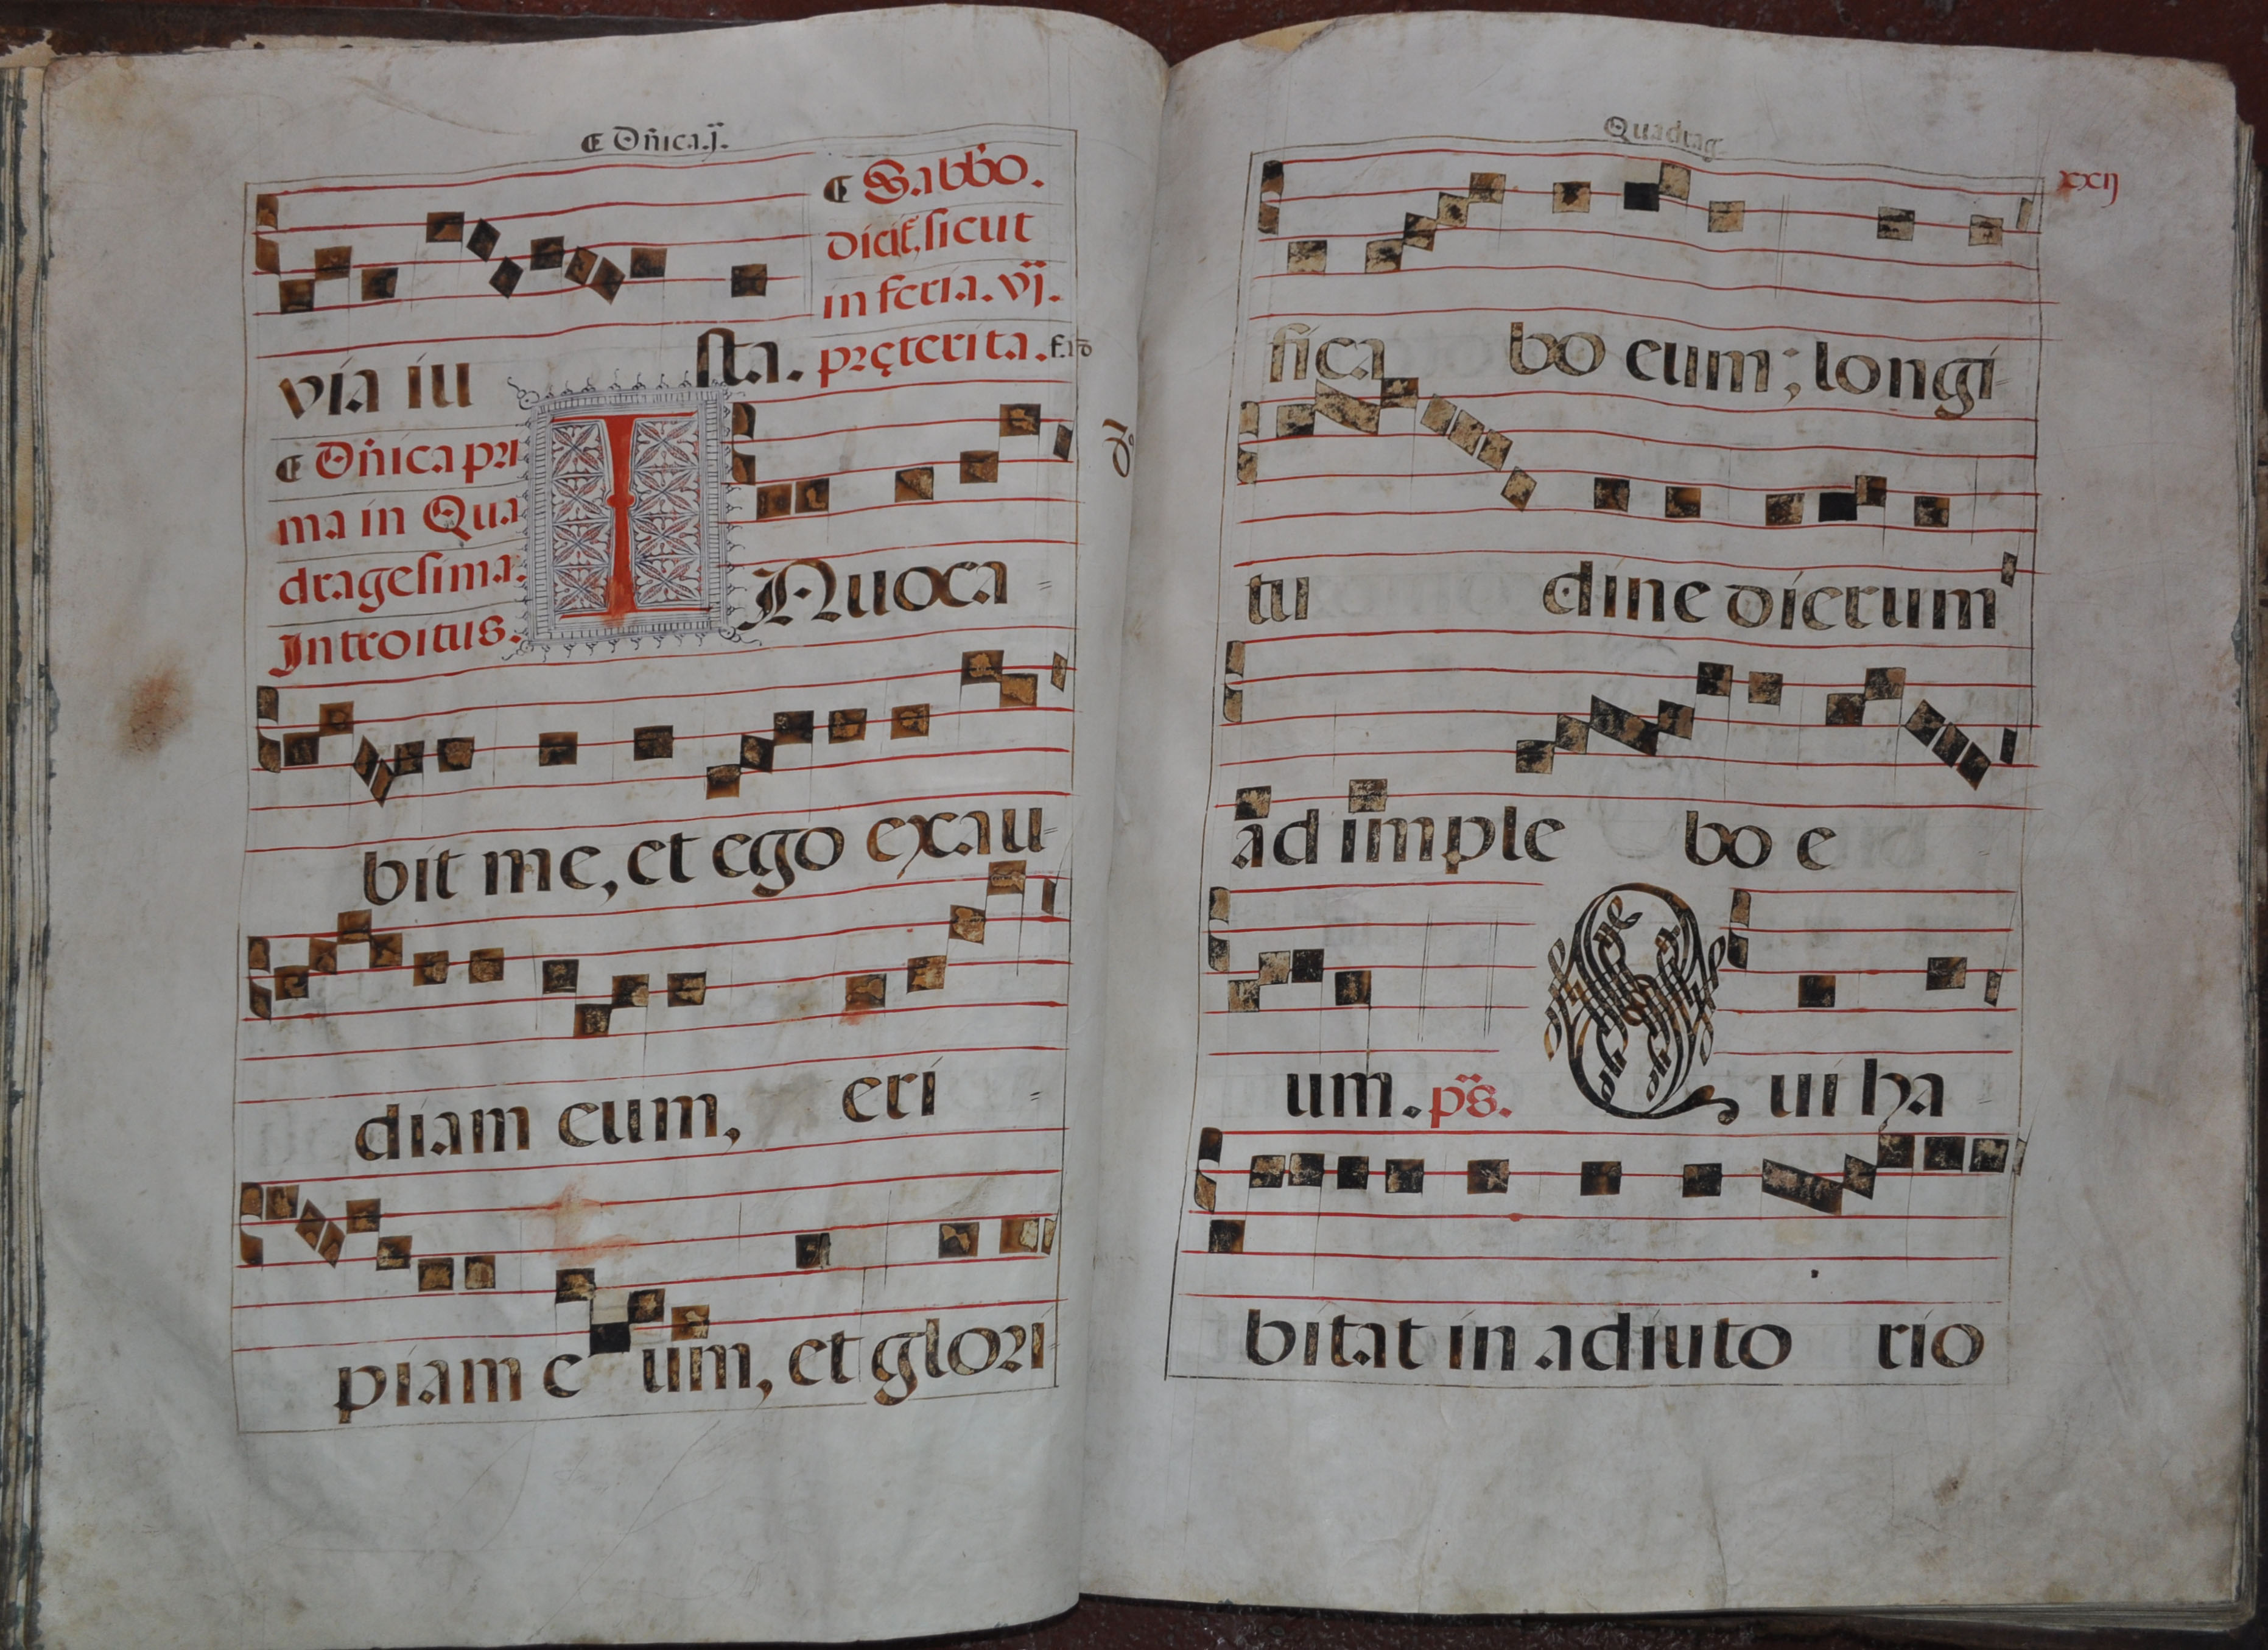 Dn̄ica.j.
Sabbo.
dicit̃, sicut
in feria. vj.
pręterita.
via iu sta.
Dn̄ica pri
ma in Qua
dragesima.
Introitus.
INuoca
bit me, et ego exau
diam eum, eri
piam e um, et glori
Quadrag
xxij
fica bo eum; longi
tu dine dierum
ad imple bo e
um. ps. Qui ha
bitat in adiuto rio